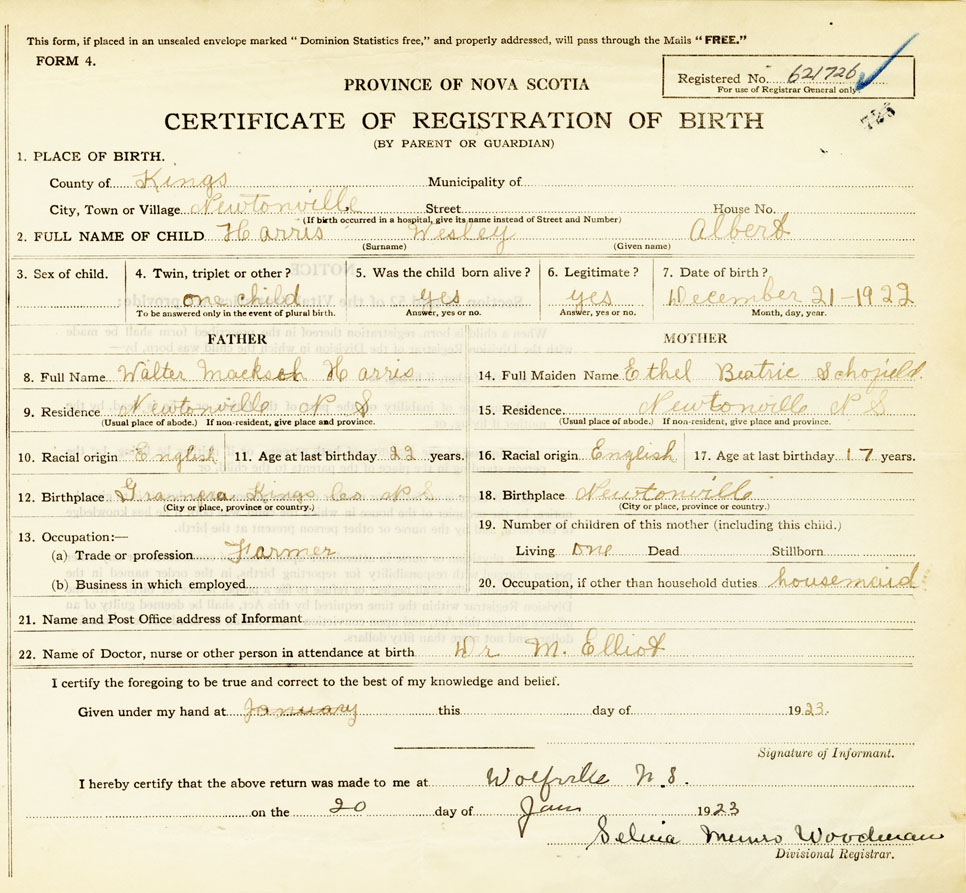 This form, if placed in an unsealed envelope marked “ Dominion Statistics free,” and properly addressed, will pass through the Mails “ FREE.”
FORM 4.
Registered No. 621726
For use of Registrar General only.
PROVINCE OF NOVA SCOTIA
CERTIFICATE OF REGISTRATION OF BIRTH
(BY PARENT OR GUARDIAN)
1. PLACE OF BIRTH.
County of Kings Municipality of
City, Town or Village Newtonville Street House No.
(If birth occurred in a hospital, give its name instead of Street and Number)
2. FULL NAME OF CHILD Harris Wesley Albert
(Surname) (Given name)
3. Sex of child. 4. Twin, triplet or other ? 5. Was the child born alive ? 6. Legitimate ? 7. Date of birth ?
one child yes yes December 21-1922
To be answered only in the event of plural birth. Answer, yes or no. Answer, yes or no. Month, day, year.
FATHER MOTHER
8. Full Name Walter Harris 14. Full Maiden Name Ethel Beatrie Schofield
9. Residence Newtonville N S 15. Residence. Newtonville N S
(Usual place of abode.) If non-resident, give place and province. (Usual place of abode.) If non-resident, give place and province.
10. Racial origin English 11. Age at last birthday 22 years. 16. Racial origin English 17. Age at last birthday 17 years.
12. Birthplace Kings Co N S 18. Birthplace Newtonville
(City or place, province or country.) (City or place, province or country.)
13. Occupation:— 19. Number of children of this mother (including this child.)
(a) Trade or profession Farmer Living one Dead Stillborn
(b) Business in which employed 20. Occupation, if other than household duties housemaid
21. Name and Post Office address of Informant
22. Name of Doctor, nurse or other person in attendance at birth Dr M. Elliot
I certify the foregoing to be true and correct to the best of my knowledge and belief.
Given under my hand at January this day of 1923.
Signature of Informant.
I hereby certify that the above return was made to me at Wolfville N.S.
on the 20 day of Jan 1923
Selina Munro Woodman
Divisional Registrar.